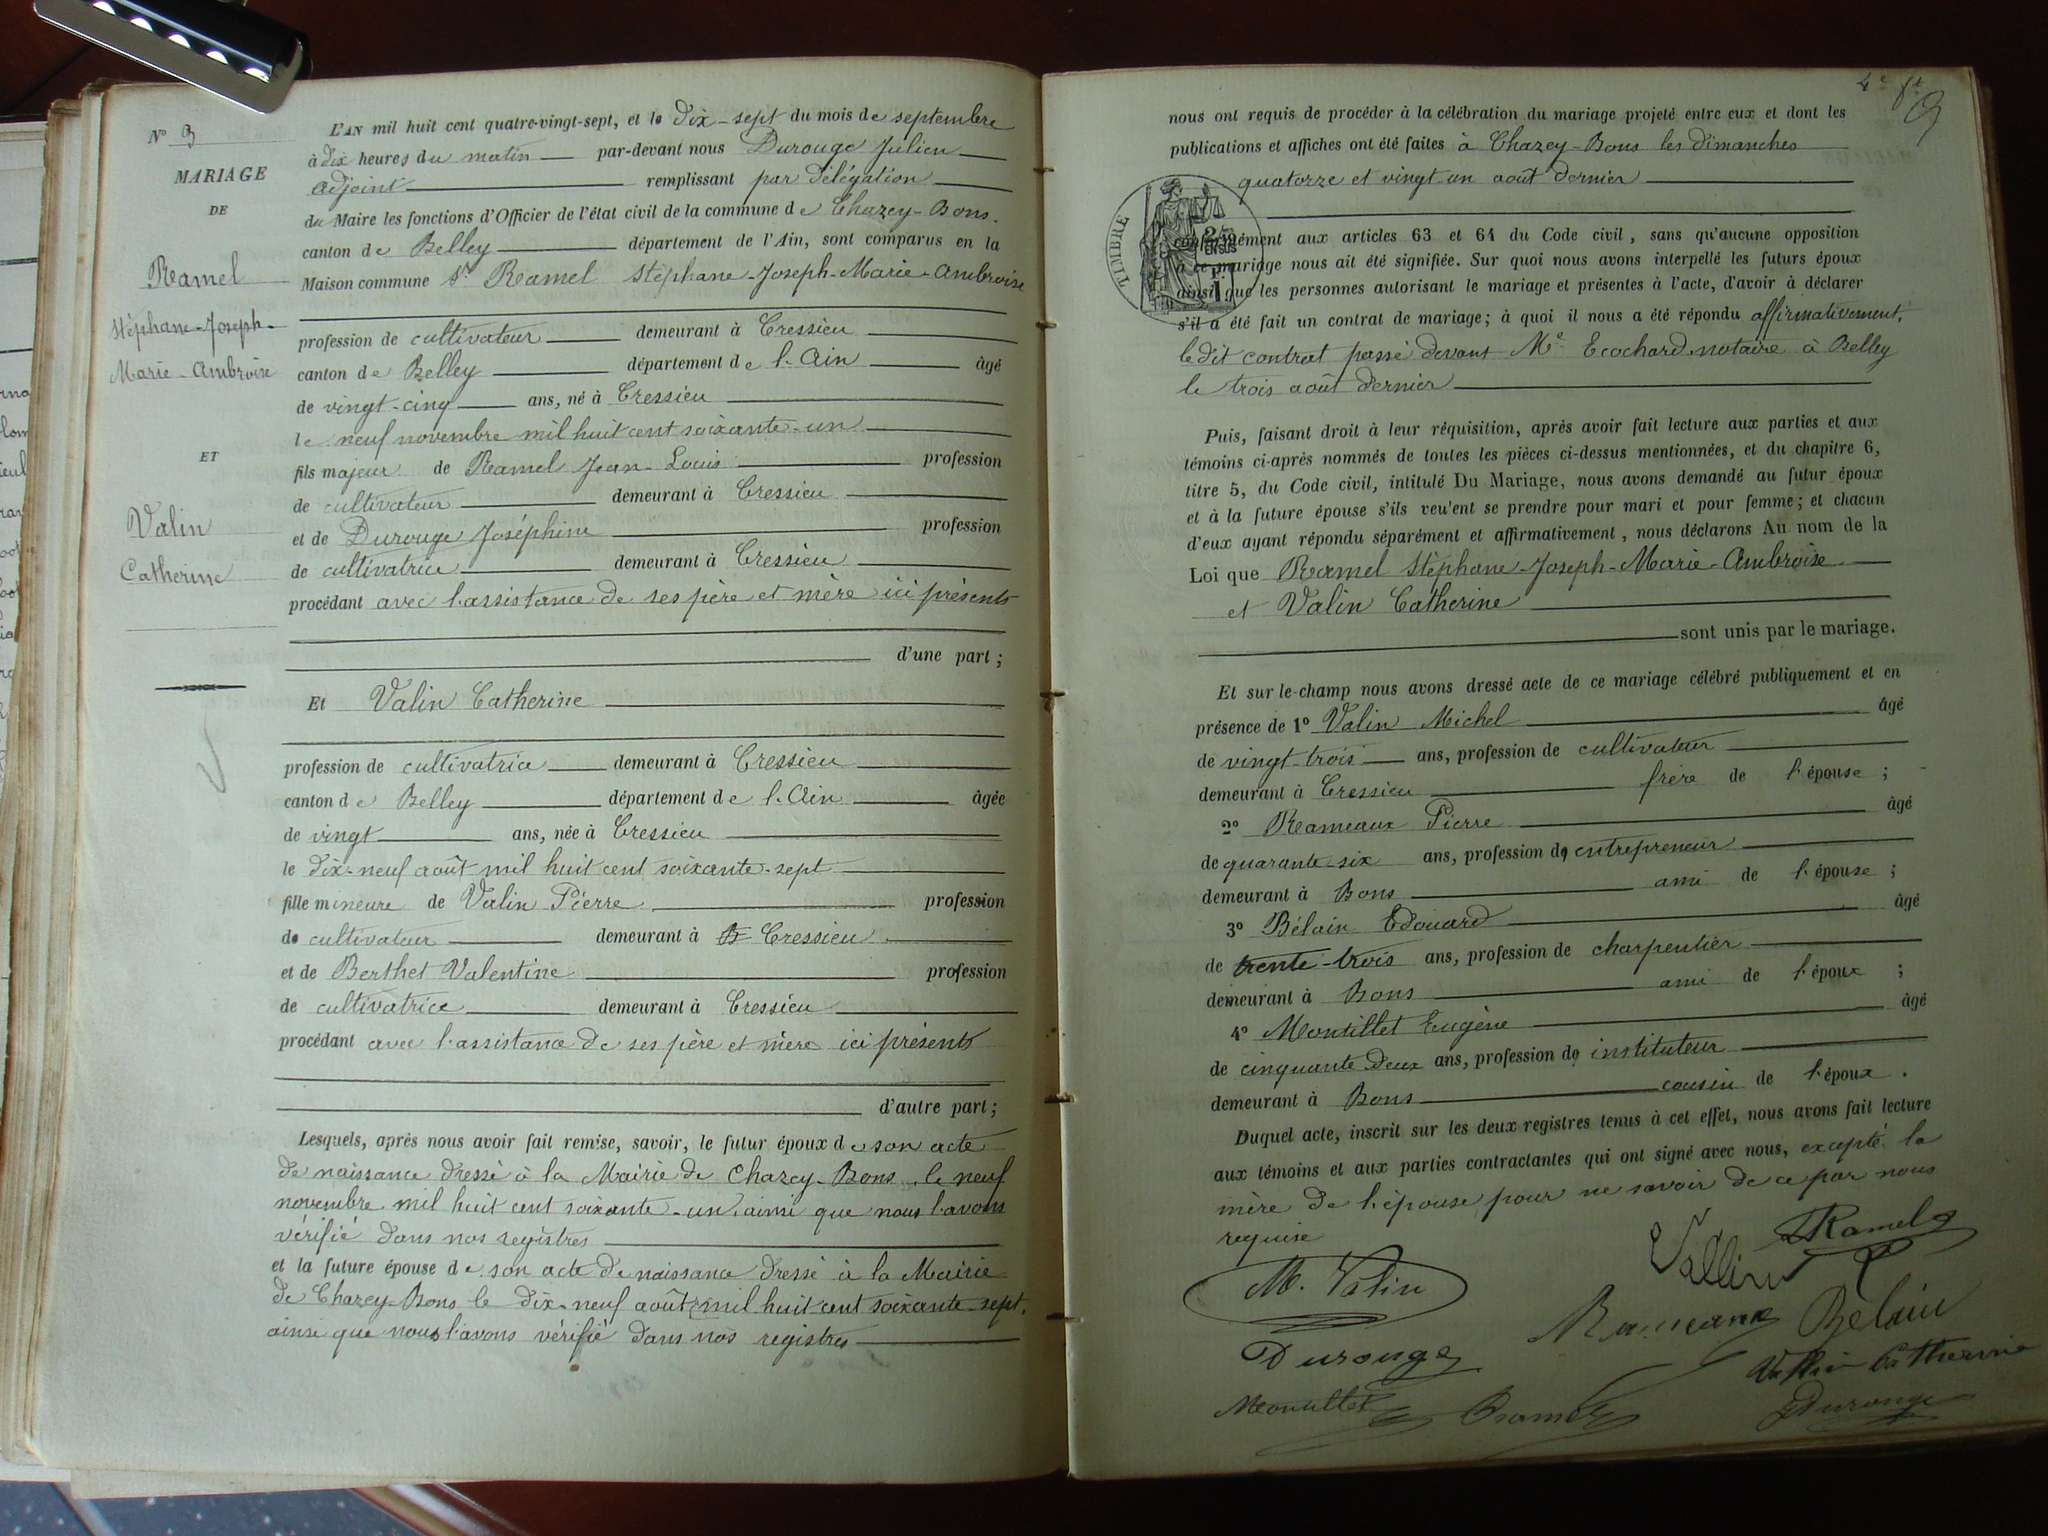 N° 3
MARIAGE
DE
Ramel
Stéphane-Joseph-
Marie-Ambroise
ET
Valin
Catherine
L'AN mil huit cent quatre-vingt-sept, et le dix-sept du mois de septembre
à dix heures du matin par-devant nous Durouge Julien
adjoint remplissant par délégation
du Maire les fonctions d'Officier de l'état civil de la commune de Chazey-Bons.
canton de Belley département de l'Ain, sont comparus en la
Maison commune Sr Ramel Stéphane-Joseph-Marie-Ambroise
profession de cultivateur demeurant à Cressieu
canton de Belley département de l'Ain âgé
de vingt-cinq ans, né à Cressieu
le neuf novembre mil huit cent soixante-un
fils majeur de Ramel Jean-Louis profession
de cultivateur demeurant à Cressieu
et de Durouge Joséphine profession
de cultivatrice demeurant à Cressieu
procédant avec l'assistance de ses père et mère ici présents
d'une part;
Et Valin Catherine
profession de cultivatrice demeurant à Cressieu
canton de Belley département de l'Ain âgée
de vingt ans, née à Cressieu
le dix-neuf août mil huit cent soixante-sept
fille mineure de Valin Pierre profession
de cultivateur demeurant à B Cressieu
et de Berthet Valentine profession
de cultivatrice demeurant à Cressieu
procédant avec l'assistance de ses père et mère ici présents
d'autre part;
Lesquels, après nous avoir fait remise, savoir, le futur époux de son acte
de naissance dressé à la Mairie de Chazey-Bons le neuf
novembre mil huit cent soixante-un, ainsi que nous l'avons
vérifié dans nos registres
et la future épouse de son acte de naissance dressé à la Mairie
de Chazey-Bons le dix-neuf août mil huit cent soixante-sept,
ainsi que nous l'avons vérifié dans nos registres
4e ft
3
nous ont requis de procéder à la célébration du mariage projeté entre eux et dont les
publications et affiches ont été faites à Chazey-Bons les dimanches
quatorze et vingt-un août dernier
TIMBRE
conformément aux articles 63 et 64 du Code civil, sans qu'aucune opposition
à ce mariage nous ait été signifiée. Sur quoi nous avons interpellé les futurs époux
ainsi que les personnes autorisant le mariage et présentes à l'acte, d'avoir à déclarer
s'il a été fait un contrat de mariage; à quoi il nous a été répondu affirmativement,
le dit contrat passé devant Me Ecochard notaire à Belley
le trois août dernier
Puis, faisant droit à leur réquisition, après avoir fait lecture aux parties et aux
témoins ci-après nommés de toutes les pièces ci-dessus mentionnées, et du chapitre 6,
titre 5, du Code civil, intitulé Du Mariage, nous avons demandé au futur époux
et à la future épouse s'ils veu'ent se prendre pour mari et pour femme; et chacun
d'eux ayant répondu séparément et affirmativement, nous déclarons Au nom de la
Loi que Ramel Stéphane-Joseph-Marie-Ambroise
et Valin Catherine
sont unis par le mariage.
Et sur-le-champ nous avons dressé acte de ce mariage célébré publiquement et en
présence de 1° Valin Michel âgé
de vingt-trois ans, profession de cultivateur
demeurant à Cressieu frère de l'épouse;
2° Rameaux Pierre âgé
de quarante-six ans, profession de entrepreneur
demeurant à Bons ami de l'épouse;
3° Bélain Edouard âgé
de trente-trois ans, profession de charpentier
demeurant à Bons ami de l'époux;
4° Montillet Eugène âgé
de cinquante deux ans, profession de instituteur
demeurant à Bons cousin de l'époux.
Duquel acte, inscrit sur les deux registres tenus à cet effet, nous avons fait lecture
aux témoins et aux parties contractantes qui ont signé avec nous, excepté la
mère de l'épouse pour ne savoir de ce par nous
requise
Vallin Ramel
M. Valin
Rameaux Bélain
Durouge
Vallin Catherine
Montillet Ramel Durouge